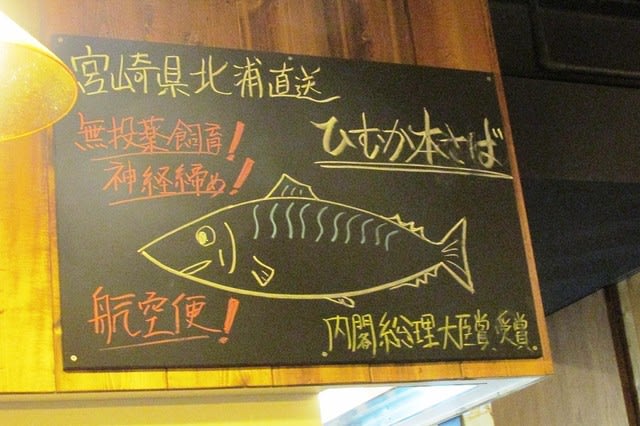 宮崎県北浦直送
無投薬飼育!
神経締め!
ひむか本さば
航空便!
内閣総理大臣賞受賞